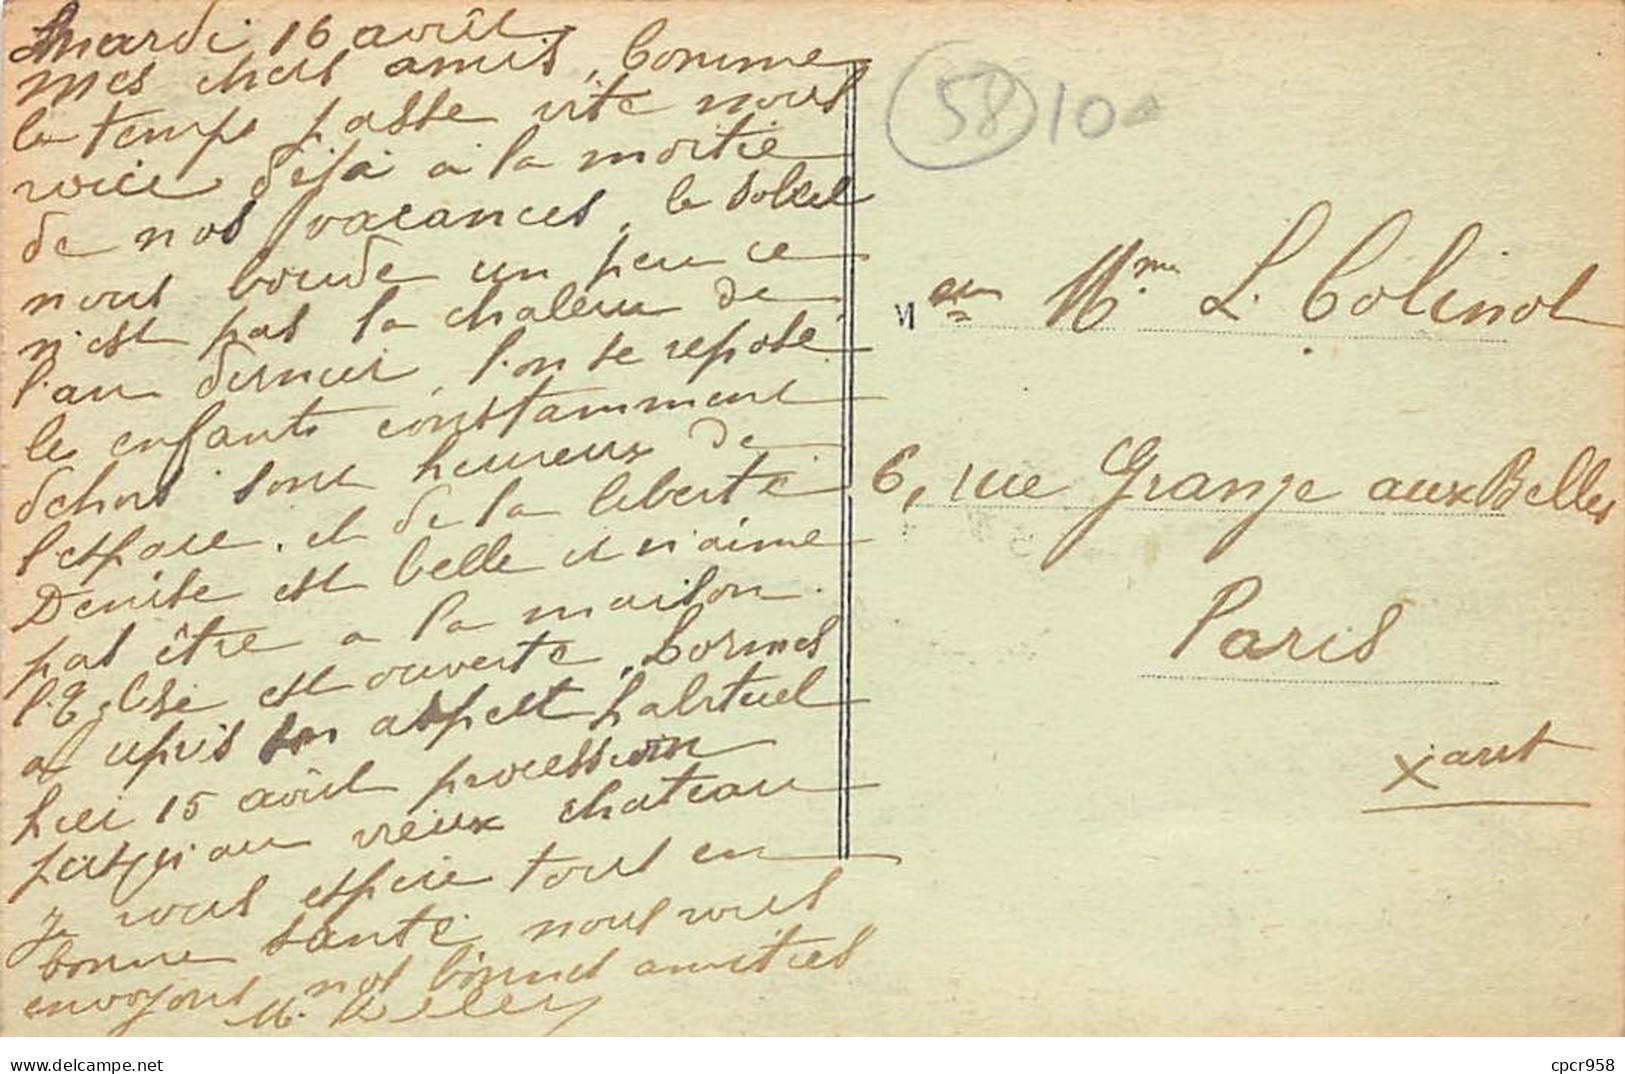 Mardi 16 août
Mes chers amis, Comme
le temps passe vite nous
voici déjà à la moitié
de nos vacances, le soleil
nous boude un peu ce
n'est pas la chaleur de
l'an dernier, l'on se repose
le enfants constamment
dehors sont heureux de
l'espace, et de la liberté
Denise est belle et n'aime
pas être a la maison.
l'Eglise est ouverte, Lormes
a repris son aspect habituel
hier 15 août procession
jusqu'au vieux chateau
je vous espère tous en
bonne santé, nous vous
envoyons nos bonnes amitiés
M.
58 10
M et Mme L. Colinot
6, rue Grange aux Belles
Paris
Xart
www.delcampe.net
cpcr958